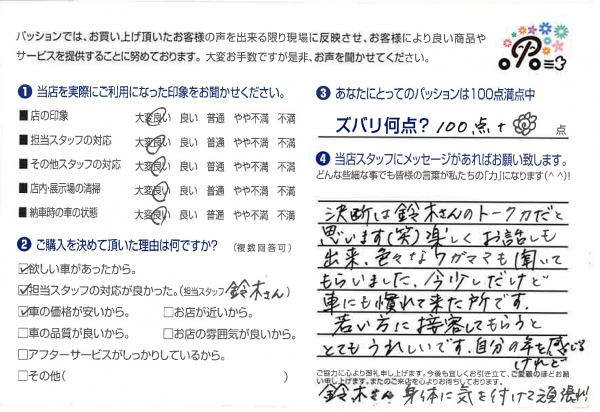 パッションでは、お買い上げ頂いたお客様の声を出来る限り現場に反映させ、お客様により良い商品や
サービスを提供することに努めております。大変お手数ですが是非、お声を聞かせてください。
❶ 当店を実際にご利用になった印象をお聞かせください。
■ 店の印象 大変良い 良い 普通 やや不満 不満
■ 担当スタッフの対応 大変良い 良い 普通 やや不満 不満
■ その他スタッフの対応 大変良い 良い 普通 やや不満 不満
■ 店内・展示場の清掃 大変良い 良い 普通 やや不満 不満
■ 納車時の車の状態 大変良い 良い 普通 やや不満 不満
❷ ご購入を決めて頂いた理由は何ですか? (複数回答可)
☑欲しい車があったから。
☑担当スタッフの対応が良かった。(担当スタッフ 鈴木さん)
☑車の価格が安いから。 □お店が近いから。
□車の品質が良いから。 □お店の雰囲気が良いから。
□アフターサービスがしっかりしているから。
□その他( )
❸ あなたにとってのパッションは100点満点中
ズバリ何点? 100点+ 点
❹ 当店スタッフにメッセージがあればお願い致します。
どんな些細な事でも皆様の言葉が私たちの「力」になります(^ ^)!
決断は鈴木さんのトーク力だと
思います(笑)楽しくお話しも
出来、色々なワガママも聞いて
もらいました。今少しだけど
車にも慣れて来た所です。
若い方に接客してもらうと
とてもうれしいです。自分の年を感じる
けれど
ご協力に心より御礼申し上げます。今後も宜しくお引き立て、ご愛顧のほどお願
い申し上げます。またのご来店を心よりお待ちしております。
鈴木さん 身体に気を付けて頑張れ!